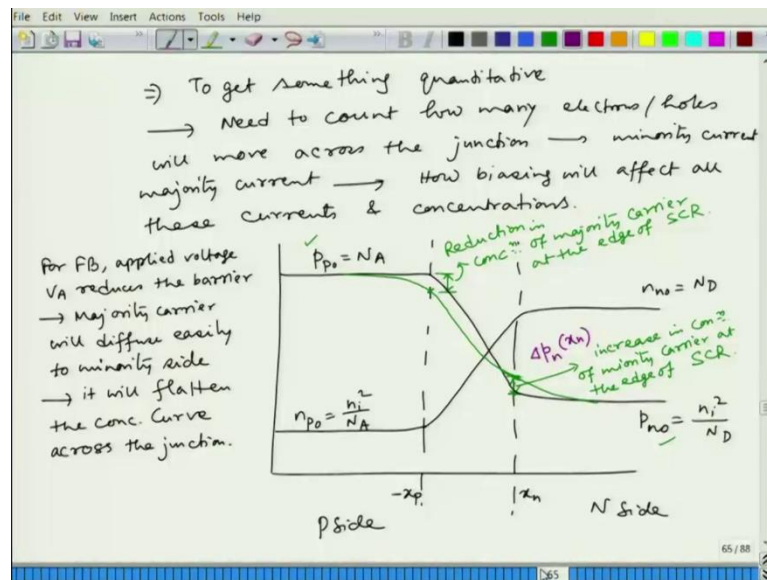 File Edit View Insert Actions Tools Help
⇒ To get something quantitative
→ Need to count how many electrons/holes
will move across the junction → minority current
majority current → How biasing will affect all
these currents & concentrations.
For FB, applied voltage
VA reduces the barrier
→ Majority carrier
will diffuse easily
to minority side
→ it will flatten
the conc. Curve
across the junction.
✓
Ppo = NA
Reduction in
concn. of majority carrier
at the edge of SCR.
nno = ND
Δpn(xn)
increase in concn.
of miority carrier at
the edge of SCR.
npo = ni²/NA
Pno = ni²/ND
-xp
xn
P Side
N Side
65 / 88
65